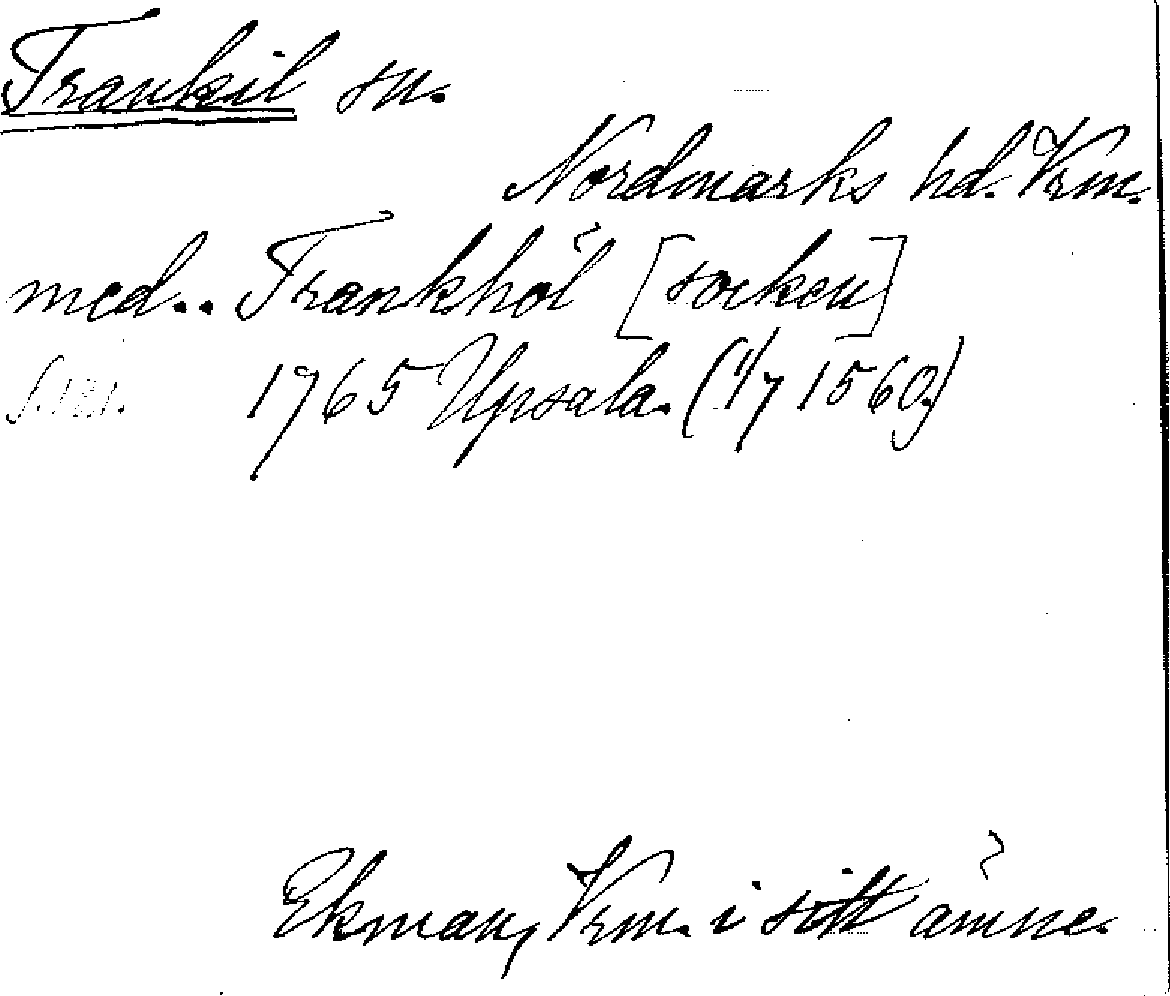 Trankil sn.
Nordmarks hd. Vrm.
med.. Trankhöl [socken]
S. 181. 1765 Upsala. (1/7 1560.)
Ekman, Vrm. i sitt ämne.